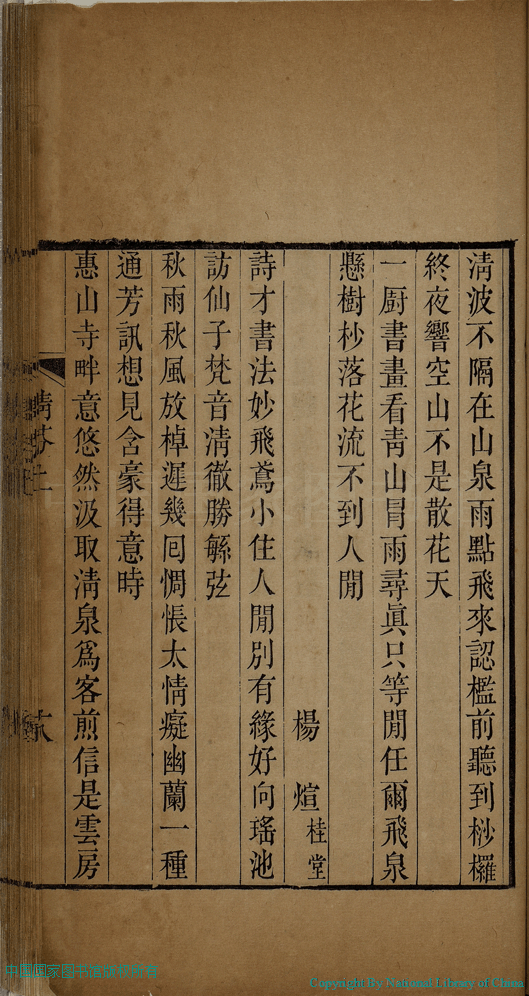 淸波不隔在山泉雨點飛來認檻前聽到桫欏
終夜響空山不是散花天
一廚書畫看靑山冒雨尋眞只等閒任爾飛泉
懸樹杪落花流不到人閒
楊煊桂堂
詩才書法妙飛鳶小住人閒別有緣好向瑤池
訪仙子梵音淸徹勝緐弦
秋雨秋風放棹遲幾回惆悵太情癡幽蘭一種
通芳訊想見含豪得意時
惠山寺畔意悠然汲取淸泉爲客煎信是雲房
Copyright By National Library of China